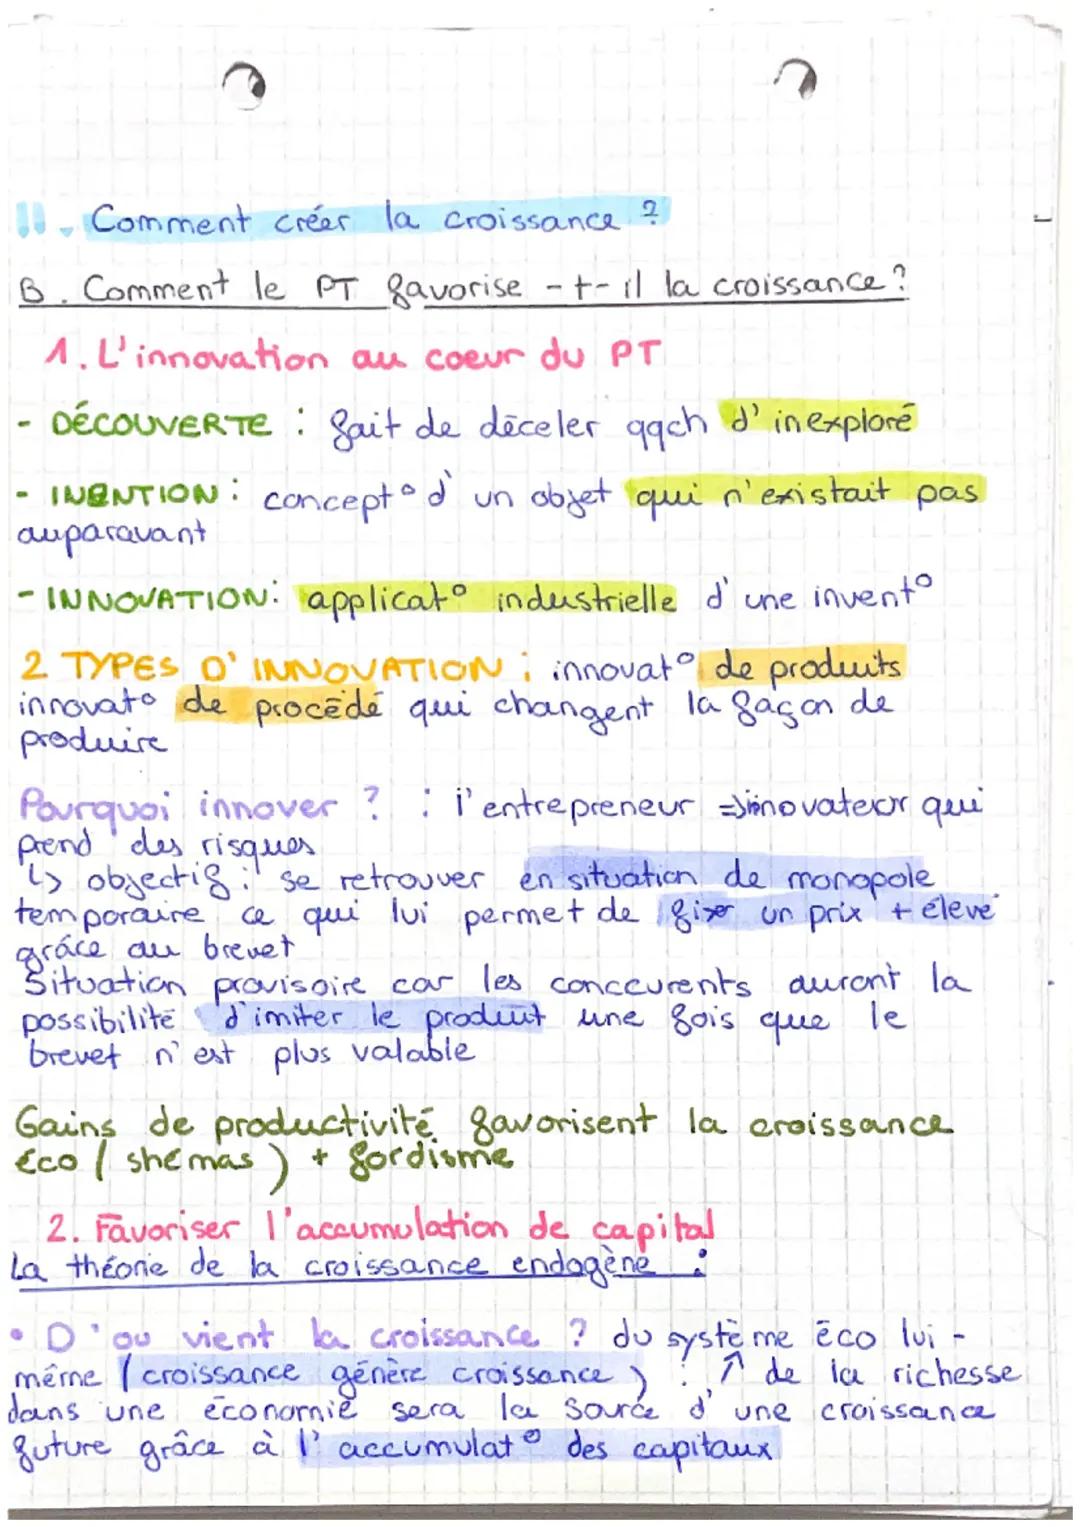 II. Comment créer la croissance ?
B. Comment le PT favorise -t- il la croissance ?
1. L'innovation au coeur du PT
- DÉCOUVERTE : fait de déceler qqch d'inexploré
- INENTION : concept° d'un objet qui n'existait pas
auparavant
- INNOVATION : applicat° industrielle d'une invent°
2 TYPES D'INNOVATION : innovat° de produits
innovat° de procédé qui changent la façon de
produire
Pourquoi innover ? : l'entrepreneur => innovateur qui
prend des risques
↳ objectif : se retrouver en situation de monopole
temporaire ce qui lui permet de fixer un prix + élevé
grâce au brevet
Situation provisoire car les conccurents auront la
possibilité d'imiter le produit une fois que le
brevet n'est plus valable
Gains de productivité favorisent la croissance
éco (shémas) + fordisme
2. Favoriser l'accumulation de capital
La théorie de la croissance endogène :
• D'où vient la croissance ? du système éco lui -
même (croissance génère croissance) : ↗ de la richesse
dans une économie sera la source d'une croissance
future grâce à l'accumulat° des capitaux